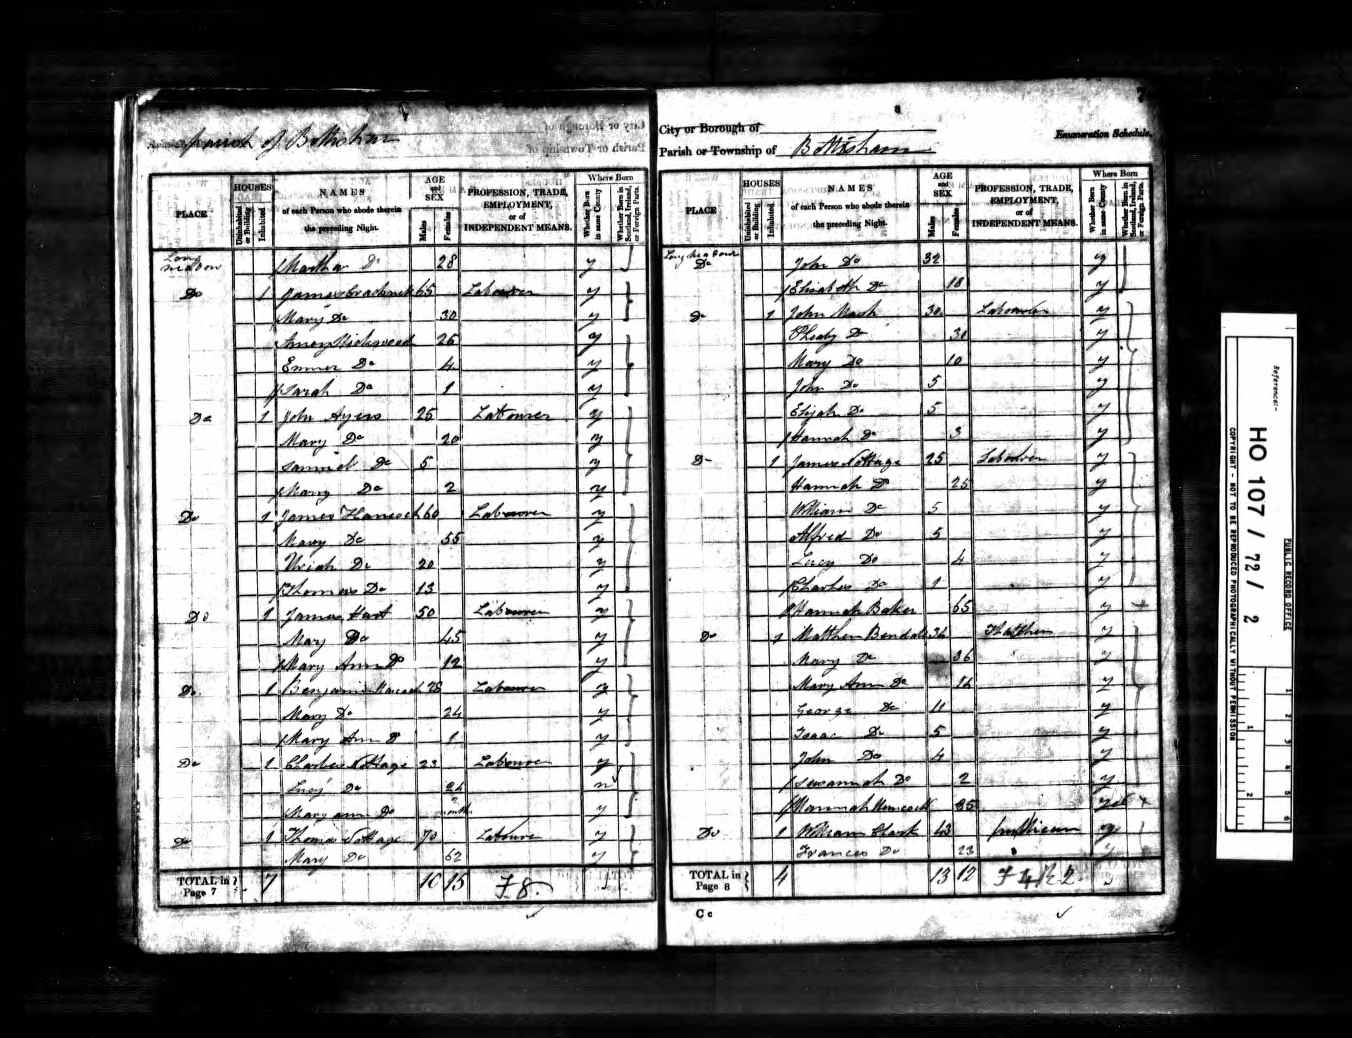 parish of Bottisham
PLACE
HOUSES
Uninhabited or Building
Inhabited
NAMES
of each Person who abode therein
the preceding Night.
AGE
and
SEX
Males
Females
PROFESSION, TRADE,
EMPLOYMENT,
or of
INDEPENDENT MEANS.
Where Born
Whether Born in same County
Whether Born in Scotland, Ireland, or Foreign Parts.
Long Meadow Martha Do 28 y
Do 1 James 65 Labourer y
Mary Do 30 y
26 y
Emmer Do 4 y
Sarah Do 1 y
Do 1 John Ayers 25 Labourer y
Mary Do 20 y
Samuel Do 5 y
Mary Do 2 y
Do 1 James Hancock 60 Labourer y
Mary Do 55 y
Uriah Do 20 y
Thomas Do 13 y
Do 1 James Hart 50 Labourer y
Mary Do 45 y
Mary Ann Do 12 y
Do 1 Benjamin Hancock 28 Labourer y
Mary Do 24 y
Mary Ann Do 1 y
Do 1 Charles Nottage 23 Labourer y
Lucy Do 24 n
Mary ann Do month y
Do 1 Thomas Nottage 70 Labourer y
Mary Do 62 y
TOTAL in Page 7 7 10 15
8
City or Borough of
Enumeration Schedule.
Parish or Township of Bottisham
PLACE
HOUSES
Uninhabited or Building
Inhabited
NAMES
of each Person who abode therein
the preceding Night.
AGE
and
SEX
Males
Females
PROFESSION, TRADE,
EMPLOYMENT,
or of
INDEPENDENT MEANS.
Where Born
Whether Born in same County
Whether Born in Scotland, Ireland, or Foreign Parts.
Long Meadow
Do John Do 32 y
Elizabeth Do 18 y
Do 1 John 30 Labourer y
Pheaby Do 30 y
Mary Do 10 y
John Do 5 y
Elijah Do 5 y
Hannah Do 3 y
Do 1 James Nottage 25 Labourer y
Hannah Do 25 y
William Do 5 y
Alfred Do 5 y
Lucy Do 4 y
Charles Do 1 y
Hannah Baker 65 y
Do 1 Matthew Bendall 36 Thatcher y
Mary Do 36 y
Mary Ann Do 14 y
George Do 11 y
Isaac Do 5 y
John Do 4 y
Sewsannah Do 2 y
Hannah Hancock 35 y
Do 1 William Clark 43 publican y
Frances Do 23 y
TOTAL in Page 8 4 13 12
C c
Reference:-
HO 107 / 72 / 2
PUBLIC RECORD OFFICE
COPYRIGHT - NOT TO BE REPRODUCED PHOTOGRAPHICALLY WITHOUT PERMISSION
1
2
1
2
3
4
5
6